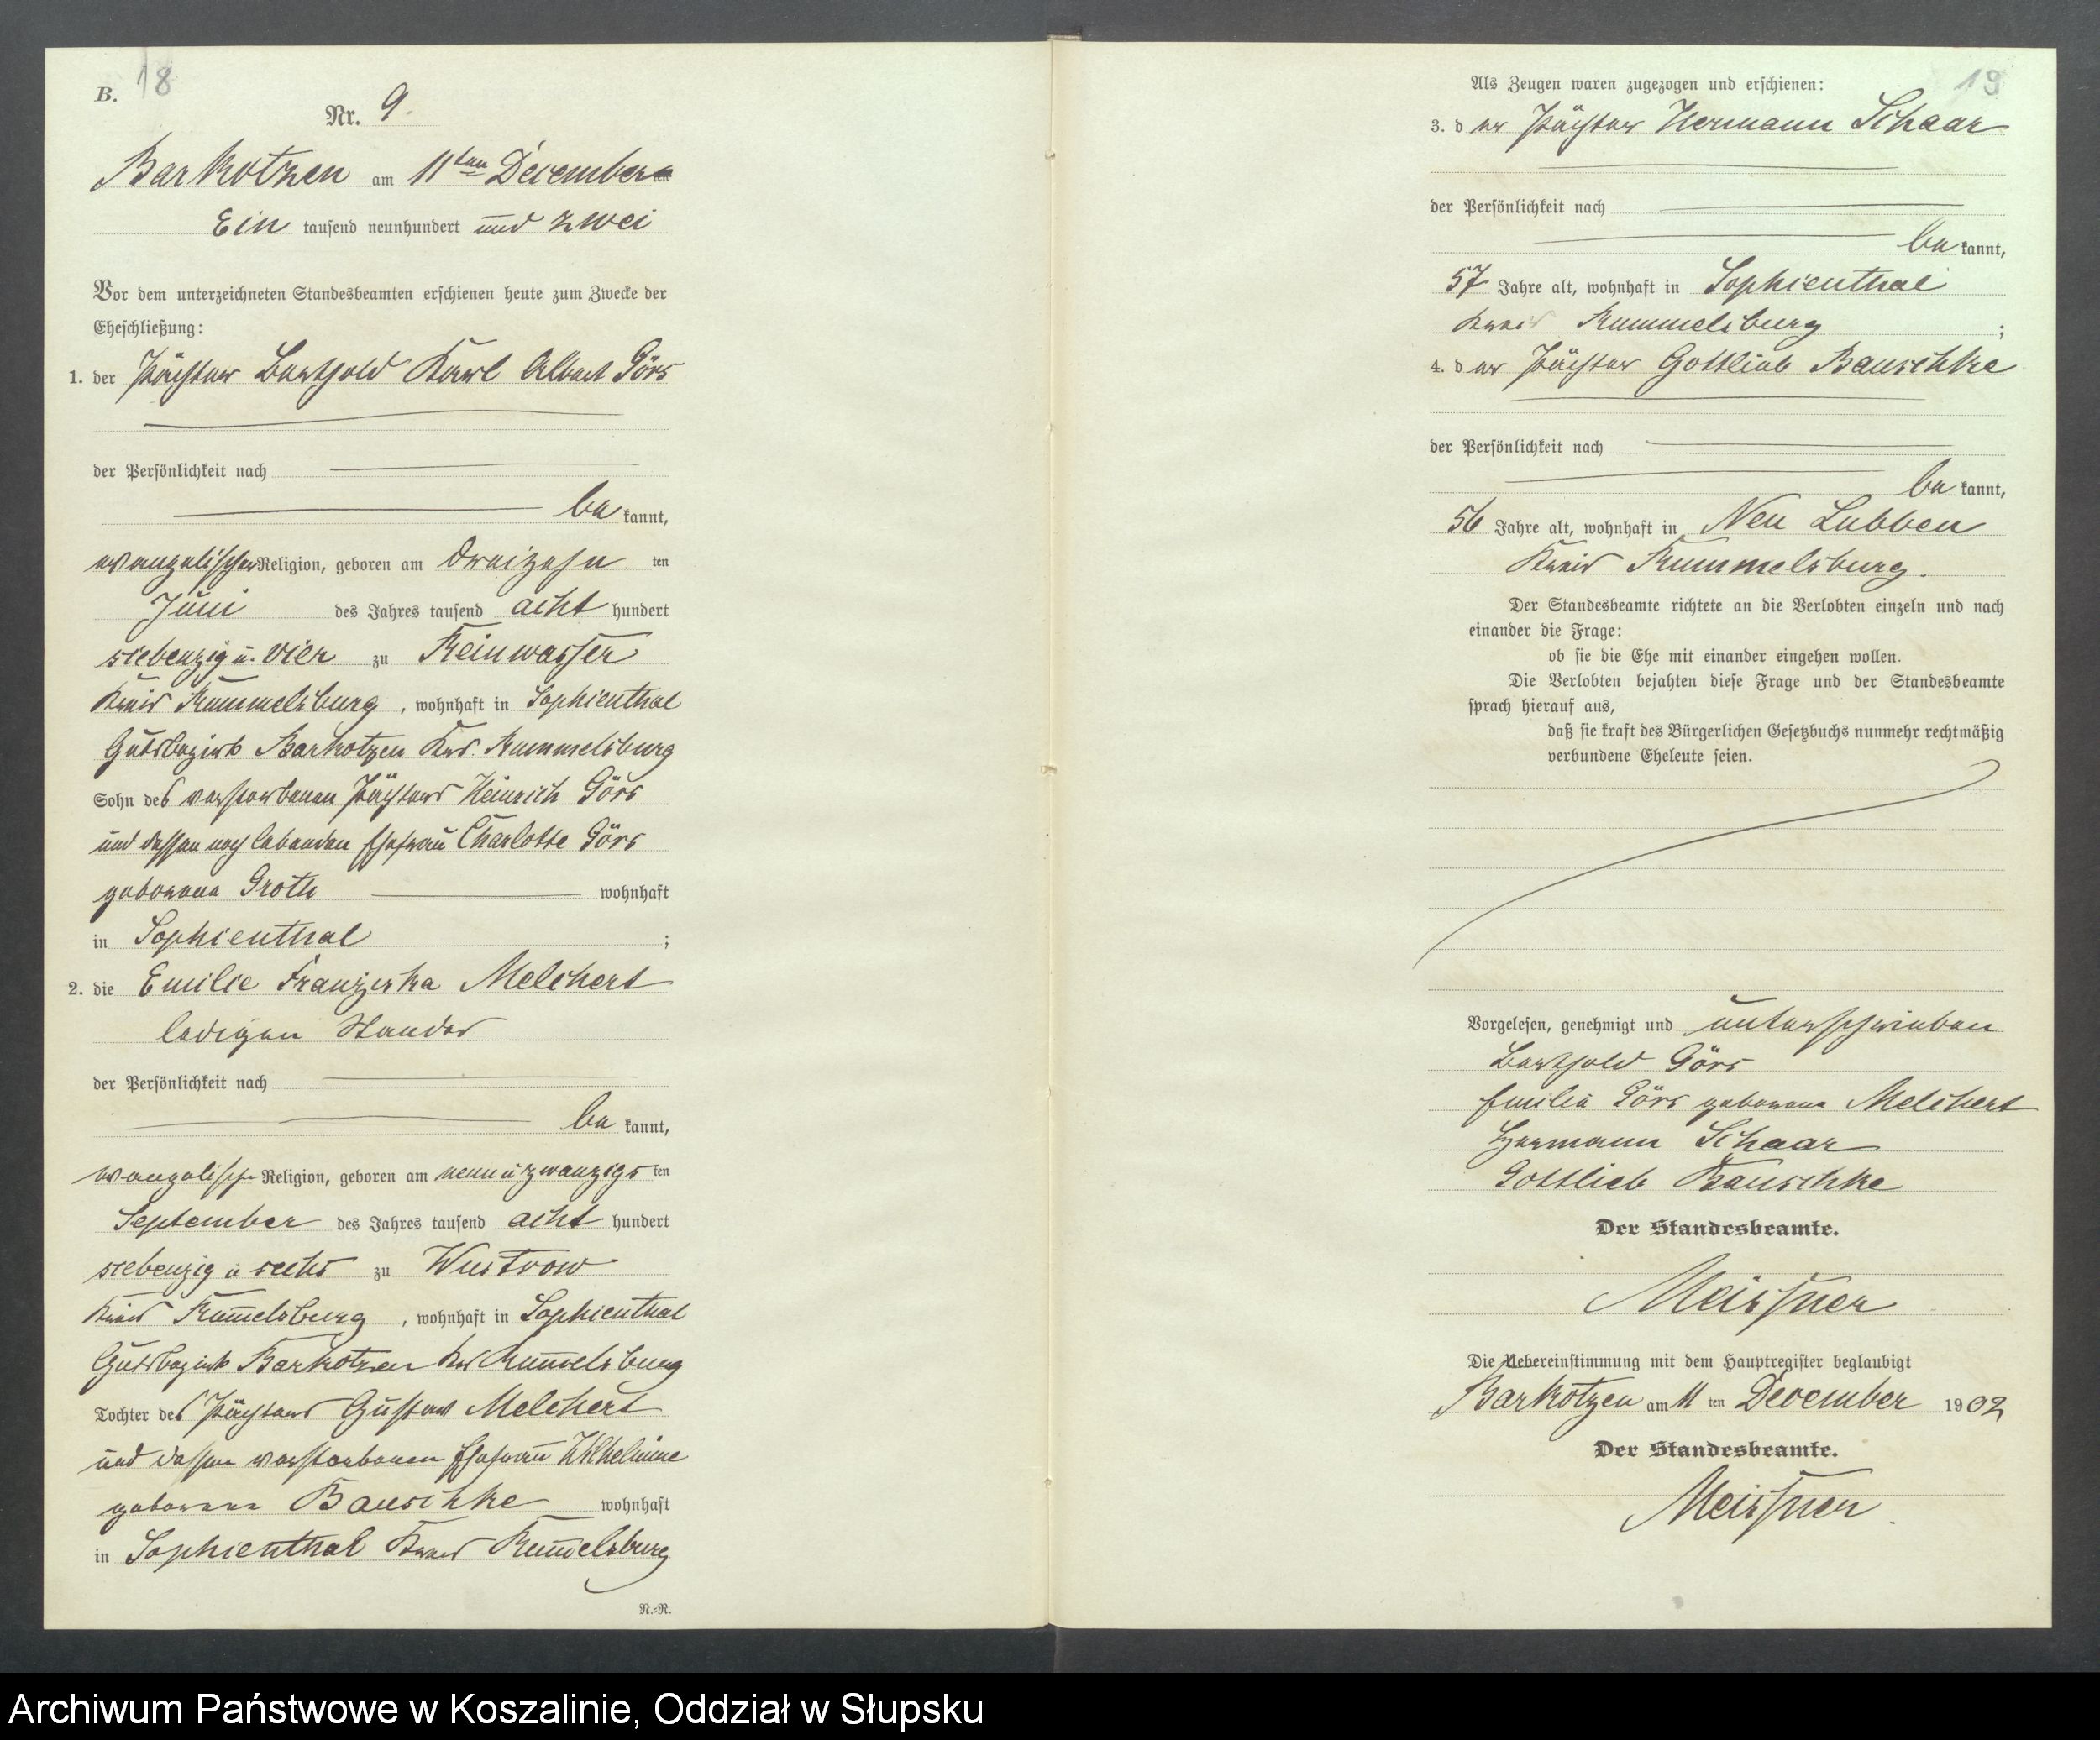 B. 18
Nr. 9.
Barkotzen am 11ten December
Ein tausend neunhundert und zwei
Vor dem unterzeichneten Standesbeamten erschienen heute zum Zwecke der
Eheschließung:
1. der Pächter Berthold Karl Albert Görs
der Persönlichkeit nach
be kannt,
evangelischer Religion, geboren am dreizehn ten
Juni des Jahres tausend acht hundert
siebenzig u. vier zu Reinwasser
Kreis Rummelsburg, wohnhaft in Sophienthal
Gutsbezirk Barkotzen Krs. Rummelsburg
Sohn des verstorbenen Pächters Heinrich Görs
und dessen noch lebenden Ehefrau Charlotte Görs
geborene Groth wohnhaft
in Sophienthal ;
2. die Emilie Franziska Melchert
ledigen Standes
der Persönlichkeit nach
be kannt,
evangelische Religion, geboren am neun u zwanzigs ten
September des Jahres tausend acht hundert
siebenzig u sechs zu Wustrow
Kreis Rum̅elsburg, wohnhaft in Sophienthal
Gutsbezirk Barkotzen Krs Rum̅elsburg
Tochter des Pächters Gustav Melchert
und dessen verstorbenen Ehefrau Wilhelmine
geborene Bauschke wohnhaft
in Sophienthal Kreis Rum̅elsburg
N.=R.
19
Als Zeugen waren zugezogen und erschienen:
3. d er Pächter Hermann Schaar
der Persönlichkeit nach
be kannt,
57 Jahre alt, wohnhaft in Sophienthal
Kreis Rummelsburg ;
4. d er Pächter Gottlieb Bauschke
der Persönlichkeit nach
be kannt,
56 Jahre alt, wohnhaft in Neu Lubben
Kreis Rummelsburg.
Der Standesbeamte richtete an die Verlobten einzeln und nach
einander die Frage:
ob sie die Ehe mit einander eingehen wollen.
Die Verlobten bejahten diese Frage und der Standesbeamte
sprach hierauf aus,
daß sie kraft des Bürgerlichen Gesetzbuchs nunmehr rechtmäßig
verbundene Eheleute seien.
Vorgelesen, genehmigt und unterschrieben
Berthold Görs
Emilie Görs geborene Melchert
Hermann Schaar
Gottlieb Bauschke
Der Standesbeamte.
Meissner
Die Uebereinstimmung mit dem Hauptregister beglaubigt
Barkotzen am 11 ten December 1902
Der Standesbeamte.
Meissner.
Archiwum Państwowe w Koszalinie, Oddział w Słupsku